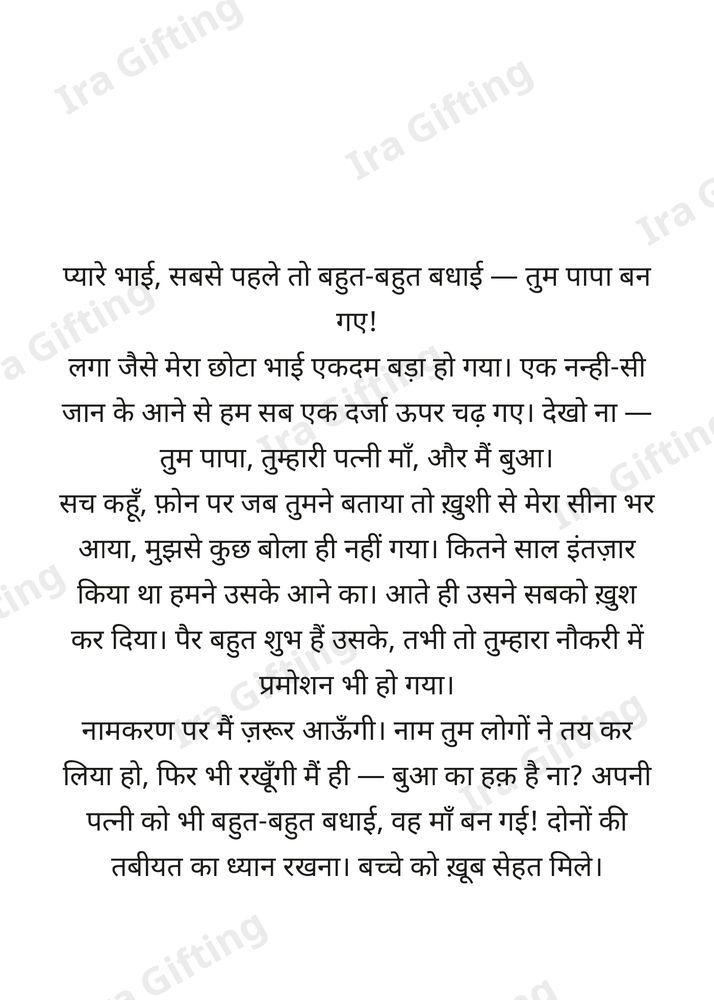 Ira Gifting
Ira Gifting
Ira G
प्यारे भाई, सबसे पहले तो बहुत-बहुत बधाई — तुम पापा बन
गए!
a Gifting
लगा जैसे मेरा छोटा भाई एकदम बड़ा हो गया। एक नन्ही-सी
जान के आने से हम सब एक दर्जा ऊपर चढ़ गए। देखो ना —
Ira Gifting
तुम पापा, तुम्हारी पत्नी माँ, और मैं बुआ।
Ira Gifting
सच कहूँ, फ़ोन पर जब तुमने बताया तो ख़ुशी से मेरा सीना भर
आया, मुझसे कुछ बोला ही नहीं गया। कितने साल इंतज़ार
किया था हमने उसके आने का। आते ही उसने सबको ख़ुश
ting
कर दिया। पैर बहुत शुभ हैं उसके, तभी तो तुम्हारा नौकरी में
प्रमोशन भी हो गया।
Ira Gifting
नामकरण पर मैं ज़रूर आऊँगी। नाम तुम लोगों ने तय कर
लिया हो, फिर भी रखूँगी मैं ही — बुआ का हक़ है ना? अपनी
Ira Gifting
पत्नी को भी बहुत-बहुत बधाई, वह माँ बन गई! दोनों की
तबीयत का ध्यान रखना। बच्चे को ख़ूब सेहत मिले।
a Gifting
ng